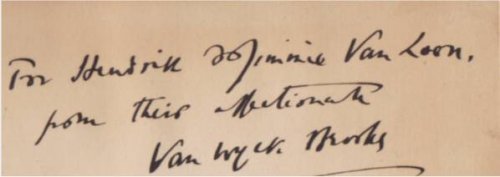 For Hendrik & Jimmie Van Loon,
from their affectionate
Van Wyck Brooks